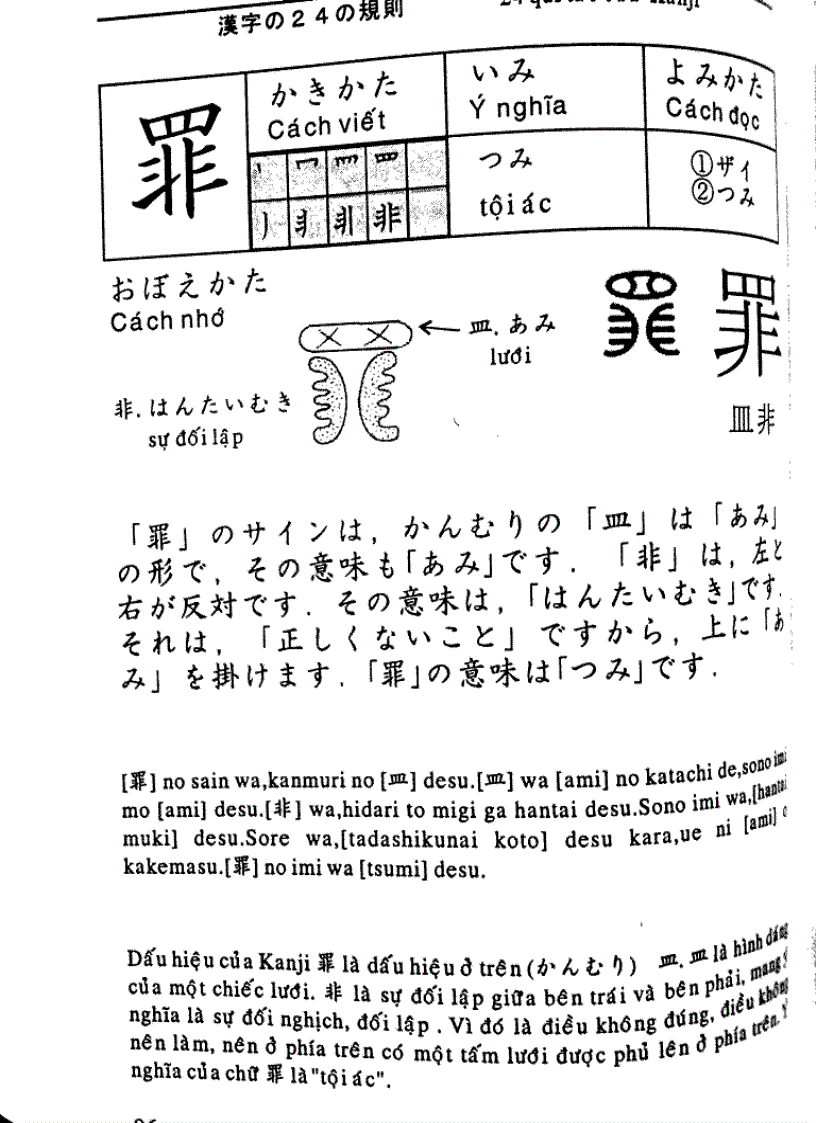 漢字の24の規則
罪
かきかた
Cách viết
いみ
Ý nghĩa
よみかた
Cách đọc
つみ
tội ác
①ザイ
②つみ
おぼえかた
Cách nhớ
罒. あみ
lưới
非. はんたいむき
sự đối lập
罪
罒非
「罪」のサインは, かんむりの「罒」は「あみ」
の形で, その意味も「あみ」です. 「非」は, 左と
右が反対です. その意味は, 「はんたいむき」です.
それは, 「正しくないこと」ですから, 上に「あ
み」を掛けます. 「罪」の意味は「つみ」です.
[罪] no sain wa,kanmuri no [罒] desu.[罒] wa [ami] no katachi de,sono imi
mo [ami] desu.[非] wa,hidari to migi ga hantai desu.Sono imi wa,[hantai
muki] desu.Sore wa,[tadashikunai koto] desu kara,ue ni [ami] o
kakemasu.[罪] no imi wa [tsumi] desu.
Dấu hiệu của Kanji 罪 là dấu hiệu ở trên (かんむり) 罒. 罒 là hình dáng
của một chiếc lưới. 非 là sự đối lập giữa bên trái và bên phải, mang ý
nghĩa là sự đối nghịch, đối lập . Vì đó là điều không đúng, điều không
nên làm, nên ở phía trên có một tấm lưới được phủ lên ở phía trên. Ý
nghĩa của chữ 罪 là "tội ác".